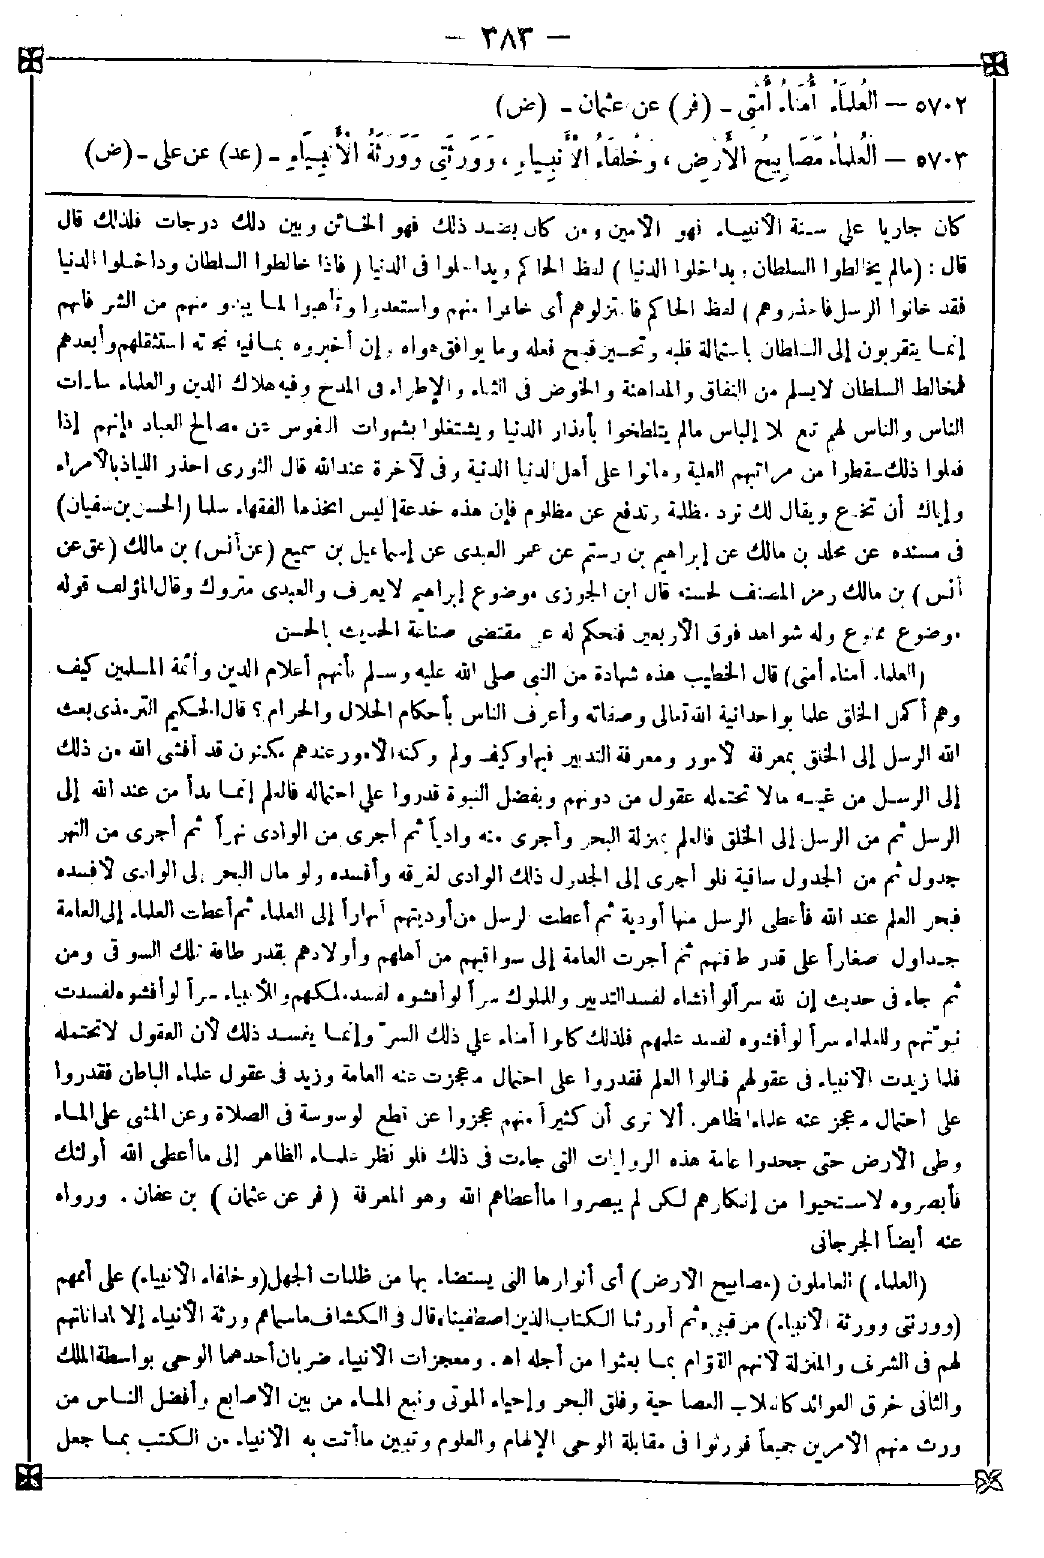 — ٣٨٣ —
٥٧٠٢ — الْعُلَمَاءُ أُمَنَاءُ أُمَّتِي - (فر) عن عثمان - (ض)
٥٧٠٣ — الْعُلَمَاءُ مَصَابِيحُ الْأَرْضِ، وَخُلَفَاءُ الْأَنْبِيَاءِ، وَوَرَثَتِي وَوَرَثَةُ الْأَنْبِيَاءِ - (عد) عن علي - (ض)
كان جاريا على سنة الأنبياء فهو الأمين ومن كان بضد ذلك فهو الخائن وبين ذلك درجات فلذلك قال
قال : (مالم يخالطوا السلطان ويداخلوا الدنيا) لفظ الحاكم ويداخلوا فى الدنيا (فاذا خالطوا السلطان وداخلوا الدنيا
فقد خانوا الرسل فاحذروهم) لفظ الحاكم فاعتزلوهم أى خافوا منهم واستعدوا وتأهبوا لما يبدو منهم من الشر فانهم
إنما يتقربون إلى السلطان باستمالة قلبه وتحسين قبيح فعله وما يوافق هواه وإن أخبروه بما فيه نجاته استثقلهم وأبعدهم
فمخالط السلطان لا يسلم من النفاق والمداهنة والخوض فى الثناء والإطراء فى المدح وفيه هلاك الدين والعلماء سادات
الناس والناس لهم تبع لا إلباس مالم يتلطخوا بأقذار الدنيا ويشتغلوا بشهوات النفوس عن مصالح العباد فإنهم إذا
فعلوا ذلك سقطوا من مراتبهم العلية وهانوا على أهل الدنيا الدنية وفى الآخرة عند الله قال الثورى احذر اللياذ بالأمراء
وإياك أن تخدع ويقال لك ترد مظلمة وتدفع عن مظلوم فإن هذه خدعة إبليس اتخذها الفقهاء سلما (الحسن بن سفيان)
فى مسنده عن مخلد بن مالك عن إبراهيم بن رستم عن عمر العبدى عن إسماعيل بن سميع (عن أنس) بن مالك (عق عن
أنس) بن مالك رمز المصنف لحسنه قال ابن الجوزى موضوع إبراهيم لا يعرف والعبدى متروك وقال المؤلف قوله
موضوع ممنوع وله شواهد فوق الأربعين فنحكم له على مقتضى صناعة الحديث بالحسن
(العلماء أمناء أمتى) قال الخطيب هذه شهادة من النبى صلى الله عليه وسلم بأنهم أعلام الدين وأئمة المسلمين كيف
وهم أكمل الخلق علما بواحدانية الله تعالى وصفاته وأعرف الناس بأحكام الحلال والحرام ؟ قال الحكيم الترمذى بعث
الله الرسل إلى الخلق بمعرفة الأمور ومعرفة التدبير فيها وكيف ولم وكنه الأمور عندهم مكنون قد أفشى الله من ذلك
إلى الرسل من غيبه مالا تحتمله عقول من دونهم وبفضل النبوة قدروا على احتماله فالعلم إنما بدأ من عند الله إلى
الرسل ثم من الرسل إلى الخلق فالعلم بمنزلة البحر وأجرى منه واديا ثم أجرى من الوادى نهراً ثم أجرى من النهر
جدول ثم من الجدول ساقية فلو أجرى إلى الجدول ذلك الوادى لغرقه وأفسده ولو مال البحر إلى الوادى لأفسده
فبحر العلم عند الله فأعطى الرسل منها أودية ثم أعطت الرسل من أوديتهم أنهاراً إلى العلماء ثم أعطت العلماء إلى العامة
جداول صغاراً على قدر طاقتهم ثم أجرت العامة إلى سواقيهم من أهلهم وأولادهم بقدر طاقة تلك السواقى ومن
ثم جاء فى حديث إن لله سراً لو أفشاه لفسد التدبير والملوك سراً لو أفشوه لفسد ملكهم والأنبياء سراً لو أفشوه لفسدت
نبوّتهم وللعلماء سراً لو أفشوه لفسد علمهم فلذلك كانوا أمناء على ذلك السرّ وإنما يفسد ذلك لأن العقول لا تحتمله
فلما زيدت الأنبياء فى عقولهم فنالوا العلم فقدروا على احتمال ما عجزت عنه العامة وزيد فى عقول علماء الباطن فقدروا
على احتمال ما عجز عنه علماء الظاهر. ألا ترى أن كثيراً منهم عجزوا عن قطع الوسوسة فى الصلاة وعن المشى على الماء
وطى الأرض حتى جحدوا عامة هذه الروايات التى جاءت فى ذلك فلو نظر علماء الظاهر إلى ما أعطى الله أولئك
فأبصروه لاستحيوا من إنكارهم لكن لم يبصروا ما أعطاهم الله وهو المعرفة (فر عن عثمان) بن عفان . ورواه
عنه أيضاً الجرجانى
(العلماء) العاملون (مصابيح الأرض) أى أنوارها التى يستضاء بها من ظلمات الجهل (وخلفاء الأنبياء) على أممهم
(وورثتى وورثة الأنبياء) من قبلى ثم أورثنا الكتاب الذين اصطفيناه قال فى الكشاف ما سماهم ورثة الأنبياء إلا لمداناتهم
لهم فى الشرف والمنزلة لأنهم القوام بما بعثوا من أجله اه. ومعجزات الأنبياء ضربان أحدهما الوحى بواسطة الملك
والثانى خرق العوائد كانقلاب العصا حية وفلق البحر وإحياء الموتى ونبع الماء من بين الأصابع وأفضل الناس من
ورث منهم الأمرين جميعاً فورثوا فى مقابلة الوحى الإلهام والعلوم وتبيين ما أتت به الأنبياء من الكتب بما جعل